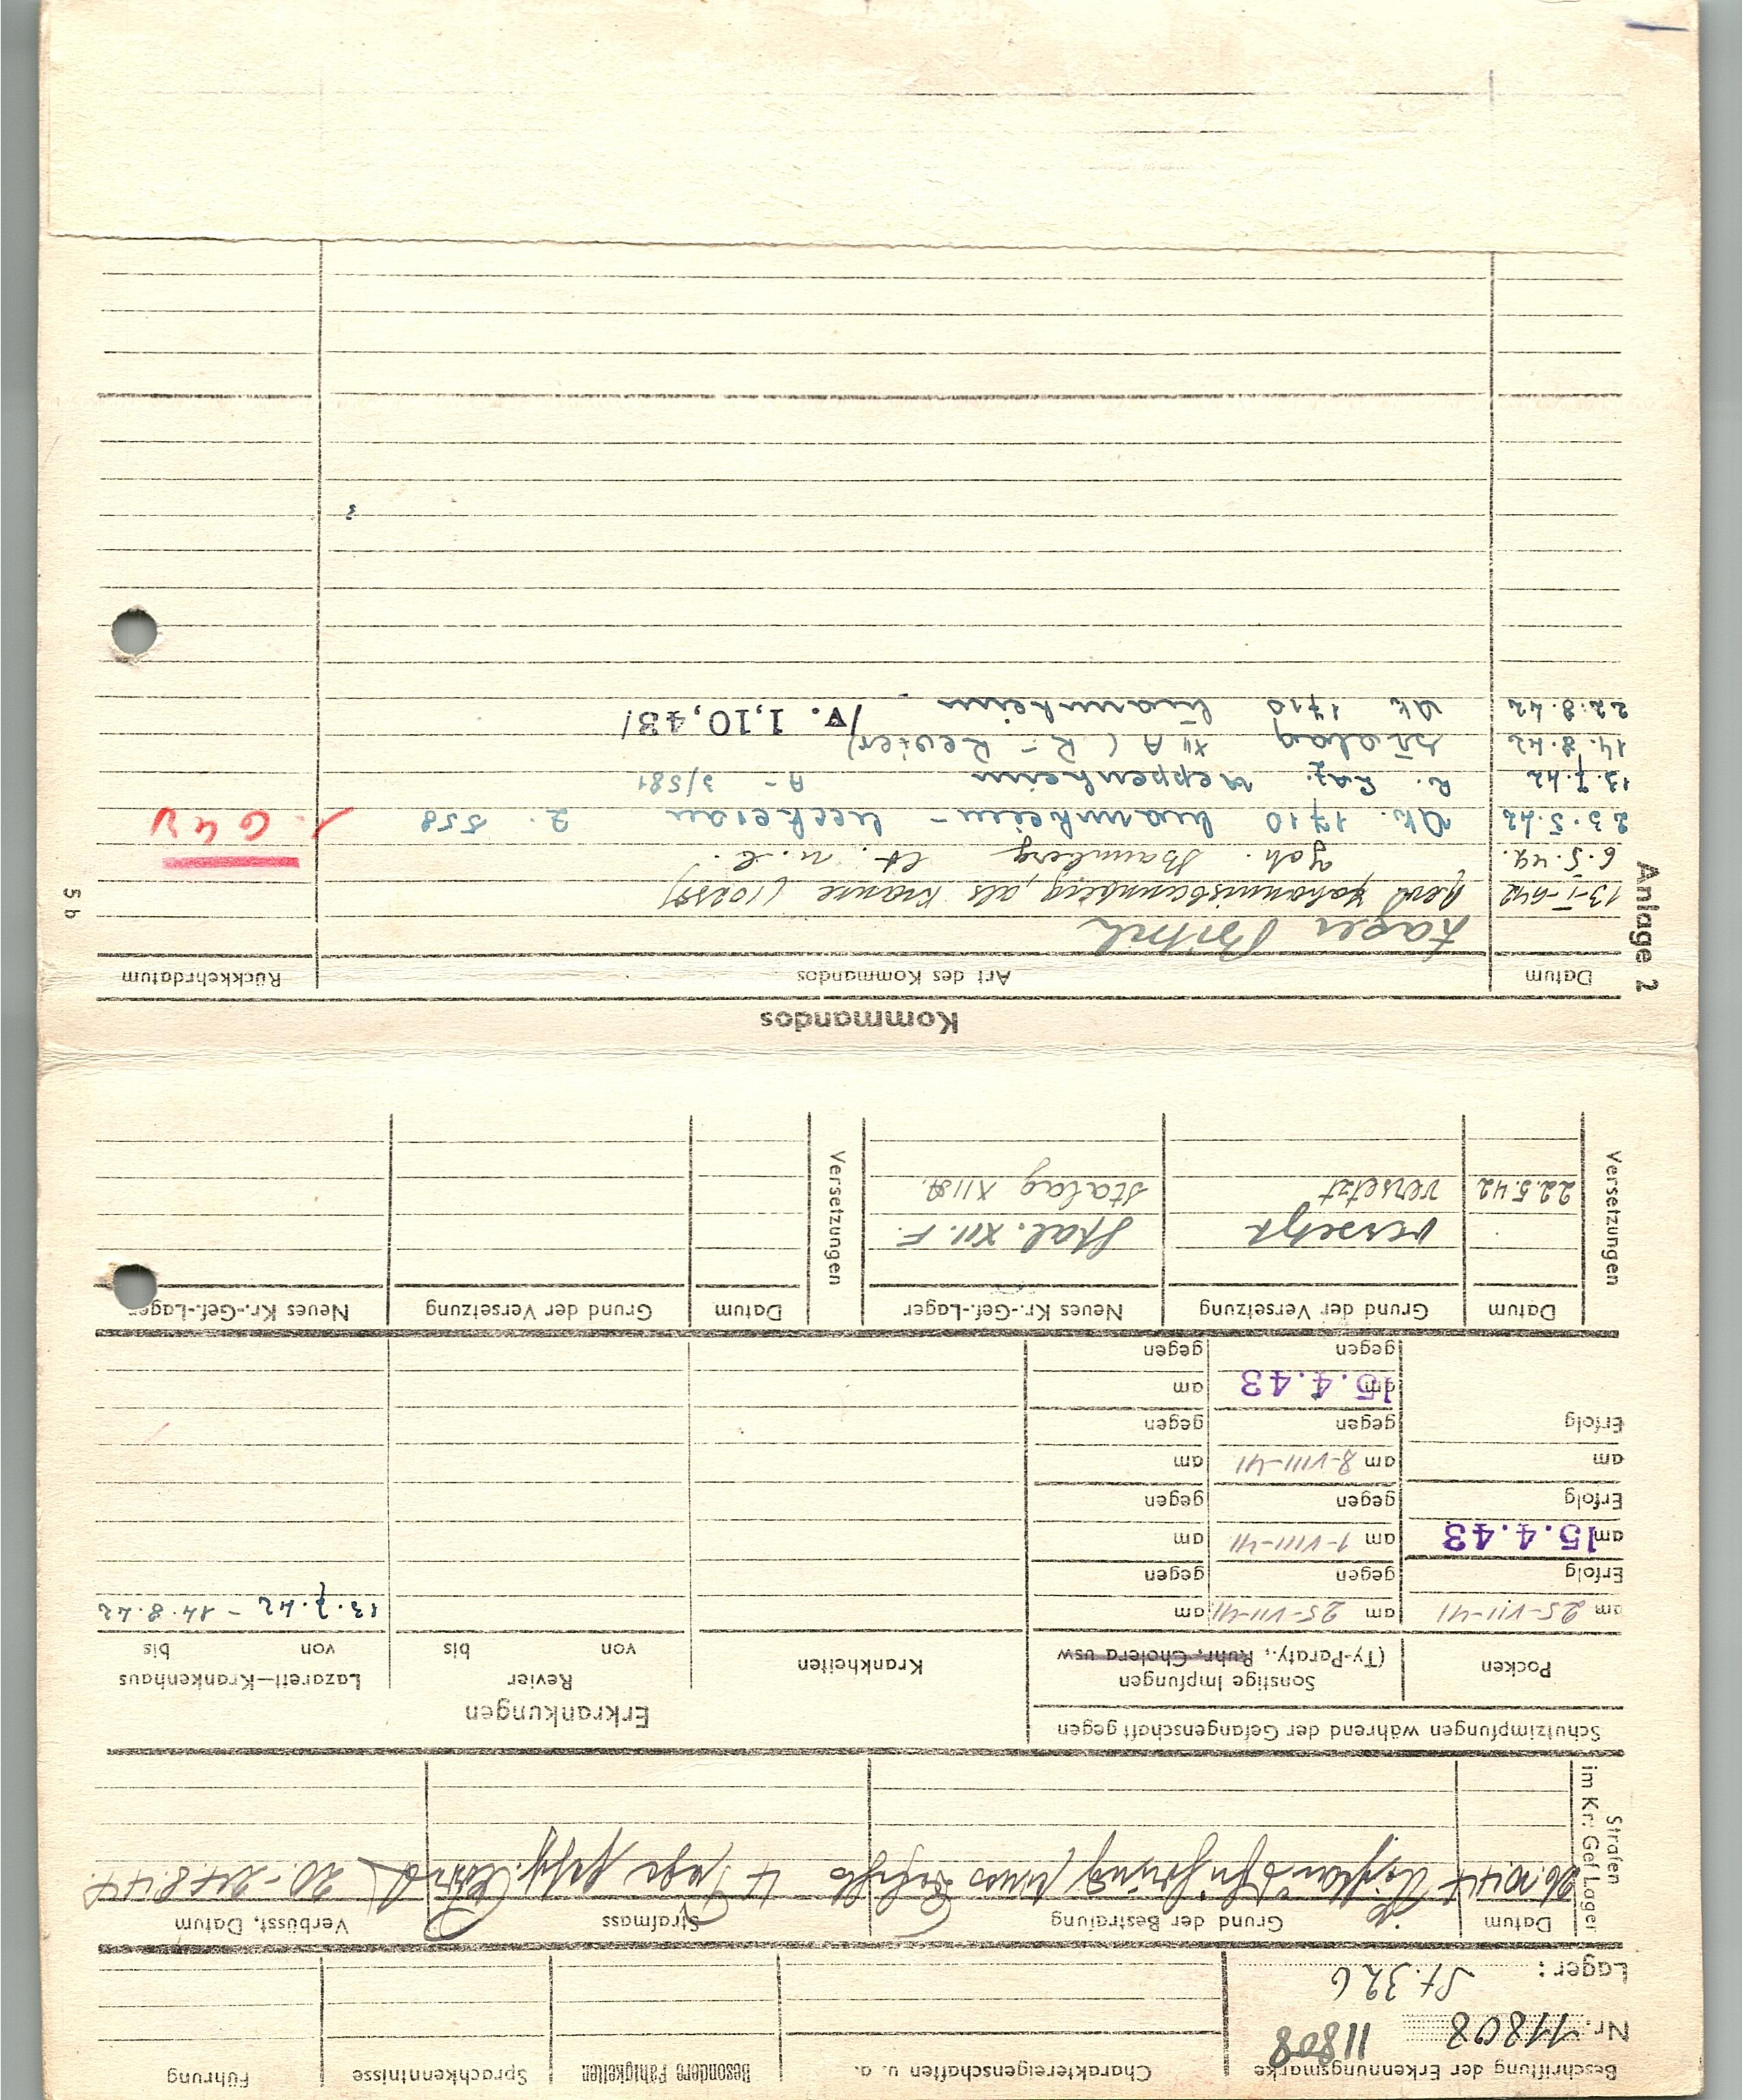 Beschriftung der Erkennungsmarke
Nr. 11808 11808
Lager: St. 326
Charaktereigenschaften u. a.
Besondere Fähigkeiten
Sprachkenntnisse
Führung
Strafen im Kr.-Gef.Lager
Datum
Grund der Bestrafung
Strafmass
Verbüsst, Datum
4 Tage gesch. Arrest
20.-24.8.44
Schutzimpfungen während der Gefangenschaft gegen
Erkrankungen
Pocken
Sonstige Impfungen
(Ty-Paraty., Ruhr, Cholera usw
Krankheiten
Revier
von bis
Lazarett—Krankenhaus
von bis
am 25-VII-41 am 25-VII-41 am
13.7.42 - 14.8.42
Erfolg gegen gegen
am 15.4.43 am 1-VIII-41 am
Erfolg gegen gegen
am am 8-VIII-41 am
Erfolg gegen gegen
am 15.4.43 am
gegen gegen
Versetzungen
Datum Grund der Versetzung Neues Kr.-Gef.-Lager
Versetzungen
Datum Grund der Versetzung Neues Kr.-Gef.-Lager
versetzt Stal. XII. F.
22.5.42 versetzt Stalag XII A.
Kommandos
Anlage 2
Datum Art des Kommandos Rückkehrdatum
5 b
Lager
13-I-642 Johannisbannberg, als Kranke (10289)
6.5.42. Joh. Bannberg
23.5.42 Ak. 1710 Mannheim - Neckerau 2. 558
648
13.7.42 R. Laz. Heppenheim A - 3/581
14.8.42 Stalag XII A (R - Revier)
22.8.42 Ak 1710 Mannheim /v. 1,10,43!